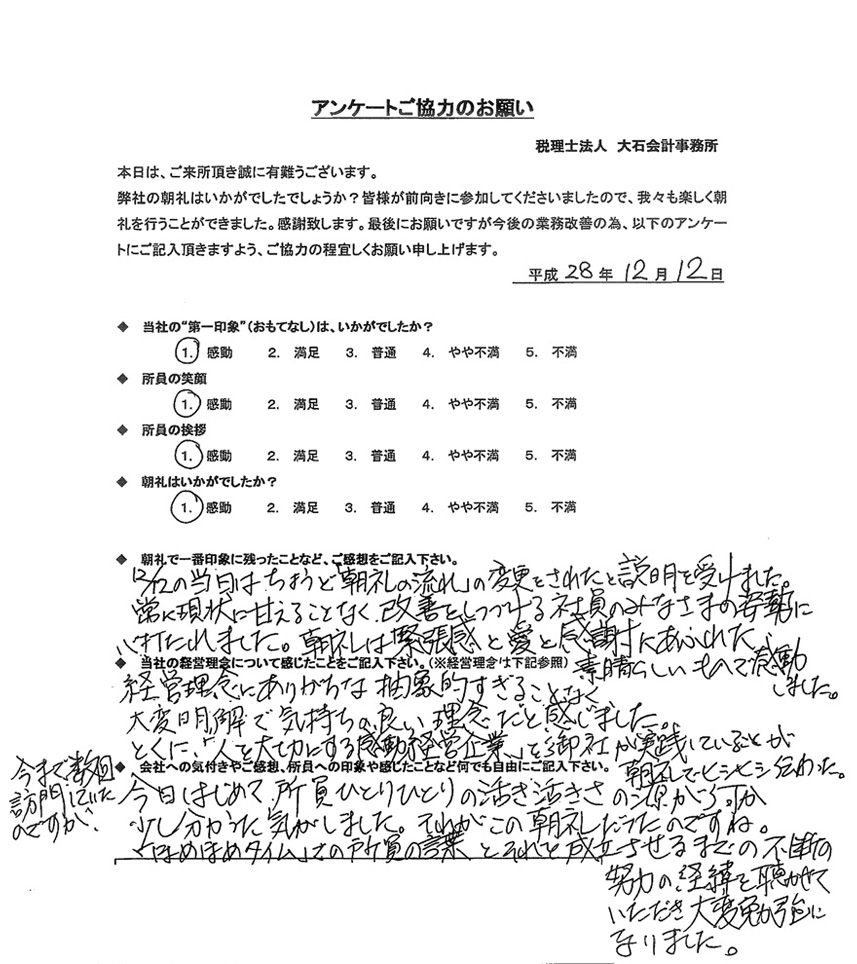 アンケートご協力のお願い
税理士法人 大石会計事務所
本日は、ご来所頂き誠に有難うございます。
弊社の朝礼はいかがでしたでしょうか？皆様が前向きに参加してくださいましたので、我々も楽しく朝
礼を行うことができました。感謝致します。最後にお願いですが今後の業務改善の為、以下のアンケー
トにご記入頂きますよう、ご協力の程宜しくお願い申し上げます。
平成 28 年 12 月 12 日
◆ 当社の“第一印象”（おもてなし）は、いかがでしたか？
1. 感動 2. 満足 3. 普通 4. やや不満 5. 不満
◆ 所員の笑顔
1. 感動 2. 満足 3. 普通 4. やや不満 5. 不満
◆ 所員の挨拶
1. 感動 2. 満足 3. 普通 4. やや不満 5. 不満
◆ 朝礼はいかがでしたか？
1. 感動 2. 満足 3. 普通 4. やや不満 5. 不満
◆ 朝礼で一番印象に残ったことなど、ご感想をご記入下さい。
12/12の当日はちょうど「朝礼の流れ」の変更をされたと説明を受けました。
常に現状に甘えることなく改善をしつづける社員のみなさまの姿勢に
心打たれました。朝礼は緊張感と愛と感謝にあふれた、
素晴らしいもので感動
しました。
◆ 当社の経営理念について感じたことをご記入下さい。（※経営理念は下記参照）
経営理念にありがちな抽象的すぎることなく
大変明解で気持ちの良い理念だと感じました。
とくに、「人を大切にする感動経営企業」を御社が実践していることが
朝礼でヒシヒシ伝わった。
◆ 会社への気付きやご感想、所員への印象や感じたことなど何でも自由にご記入下さい。
今まで数回
訪問していた
のですが、
今日はじめて所員ひとりひとりの活き活きさの源が
少し分かった気がしました。それがこの朝礼だったのですね。
「ほめほめタイム」での所員の言葉とそれを成立させるまでの不断の
努力の経緯を聴かせて
いただき大変勉強に
なりました。